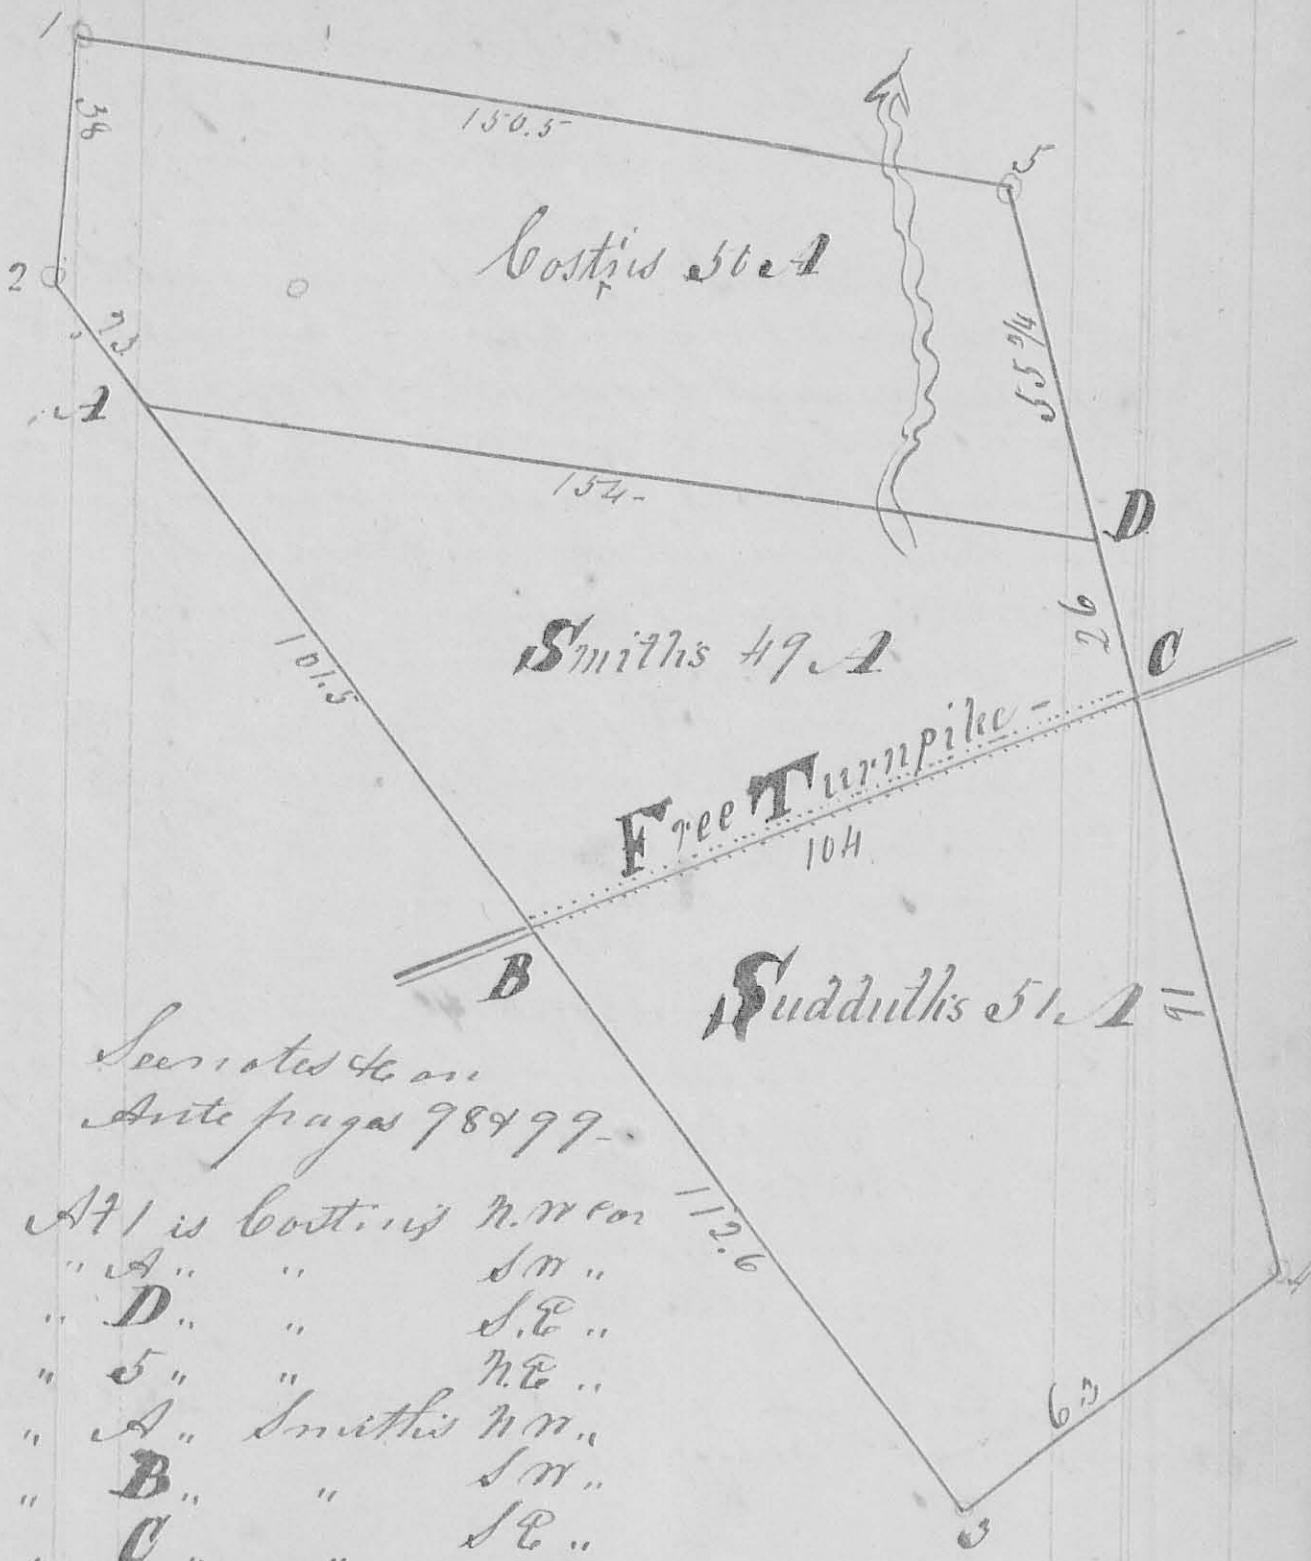 1
38
150.5
5
2
Costin's 50 A
23
55 3/4
A
154-
D
26
C
Smiths 49 A
101.5
Free Turnpike -
104
B
Sudduth's 51 A
91
See notes &c on
Ante pages 98 & 99-
112.6
At 1 is Costin's N.W cor
" A " " S W "
" D " " S.E "
" 5 " " N.E "
" A " Smith's N W "
" B " " S W "
" C " " S E "
4
63
3